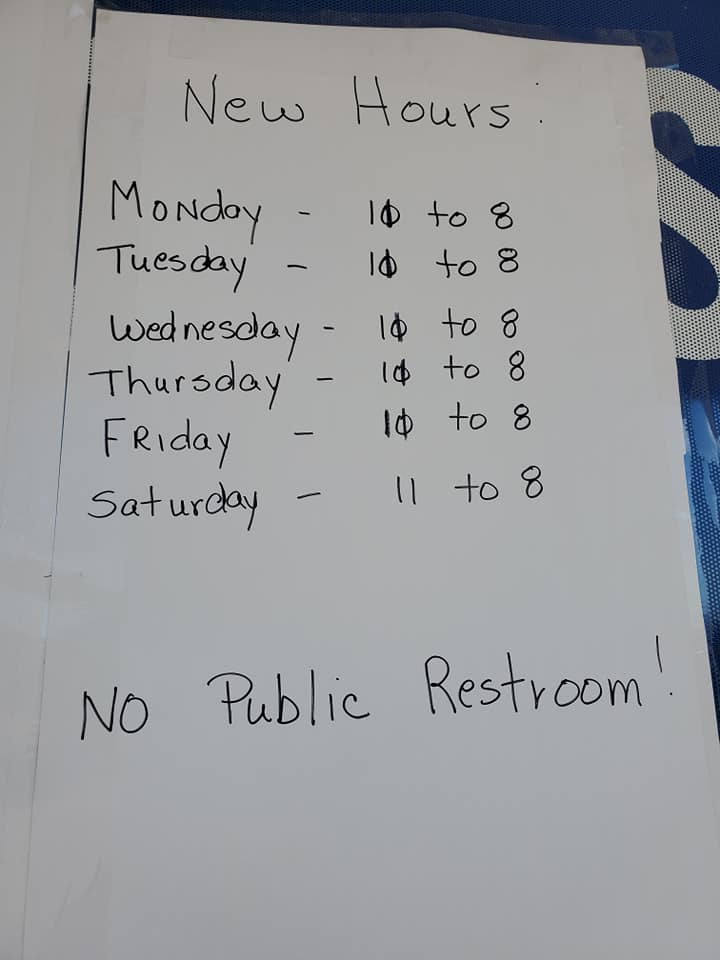 New Hours:
Monday - 10 to 8
Tuesday - 10 to 8
Wednesday - 10 to 8
Thursday - 10 to 8
FRIday - 10 to 8
Saturday - 11 to 8
NO Public Restroom!
S